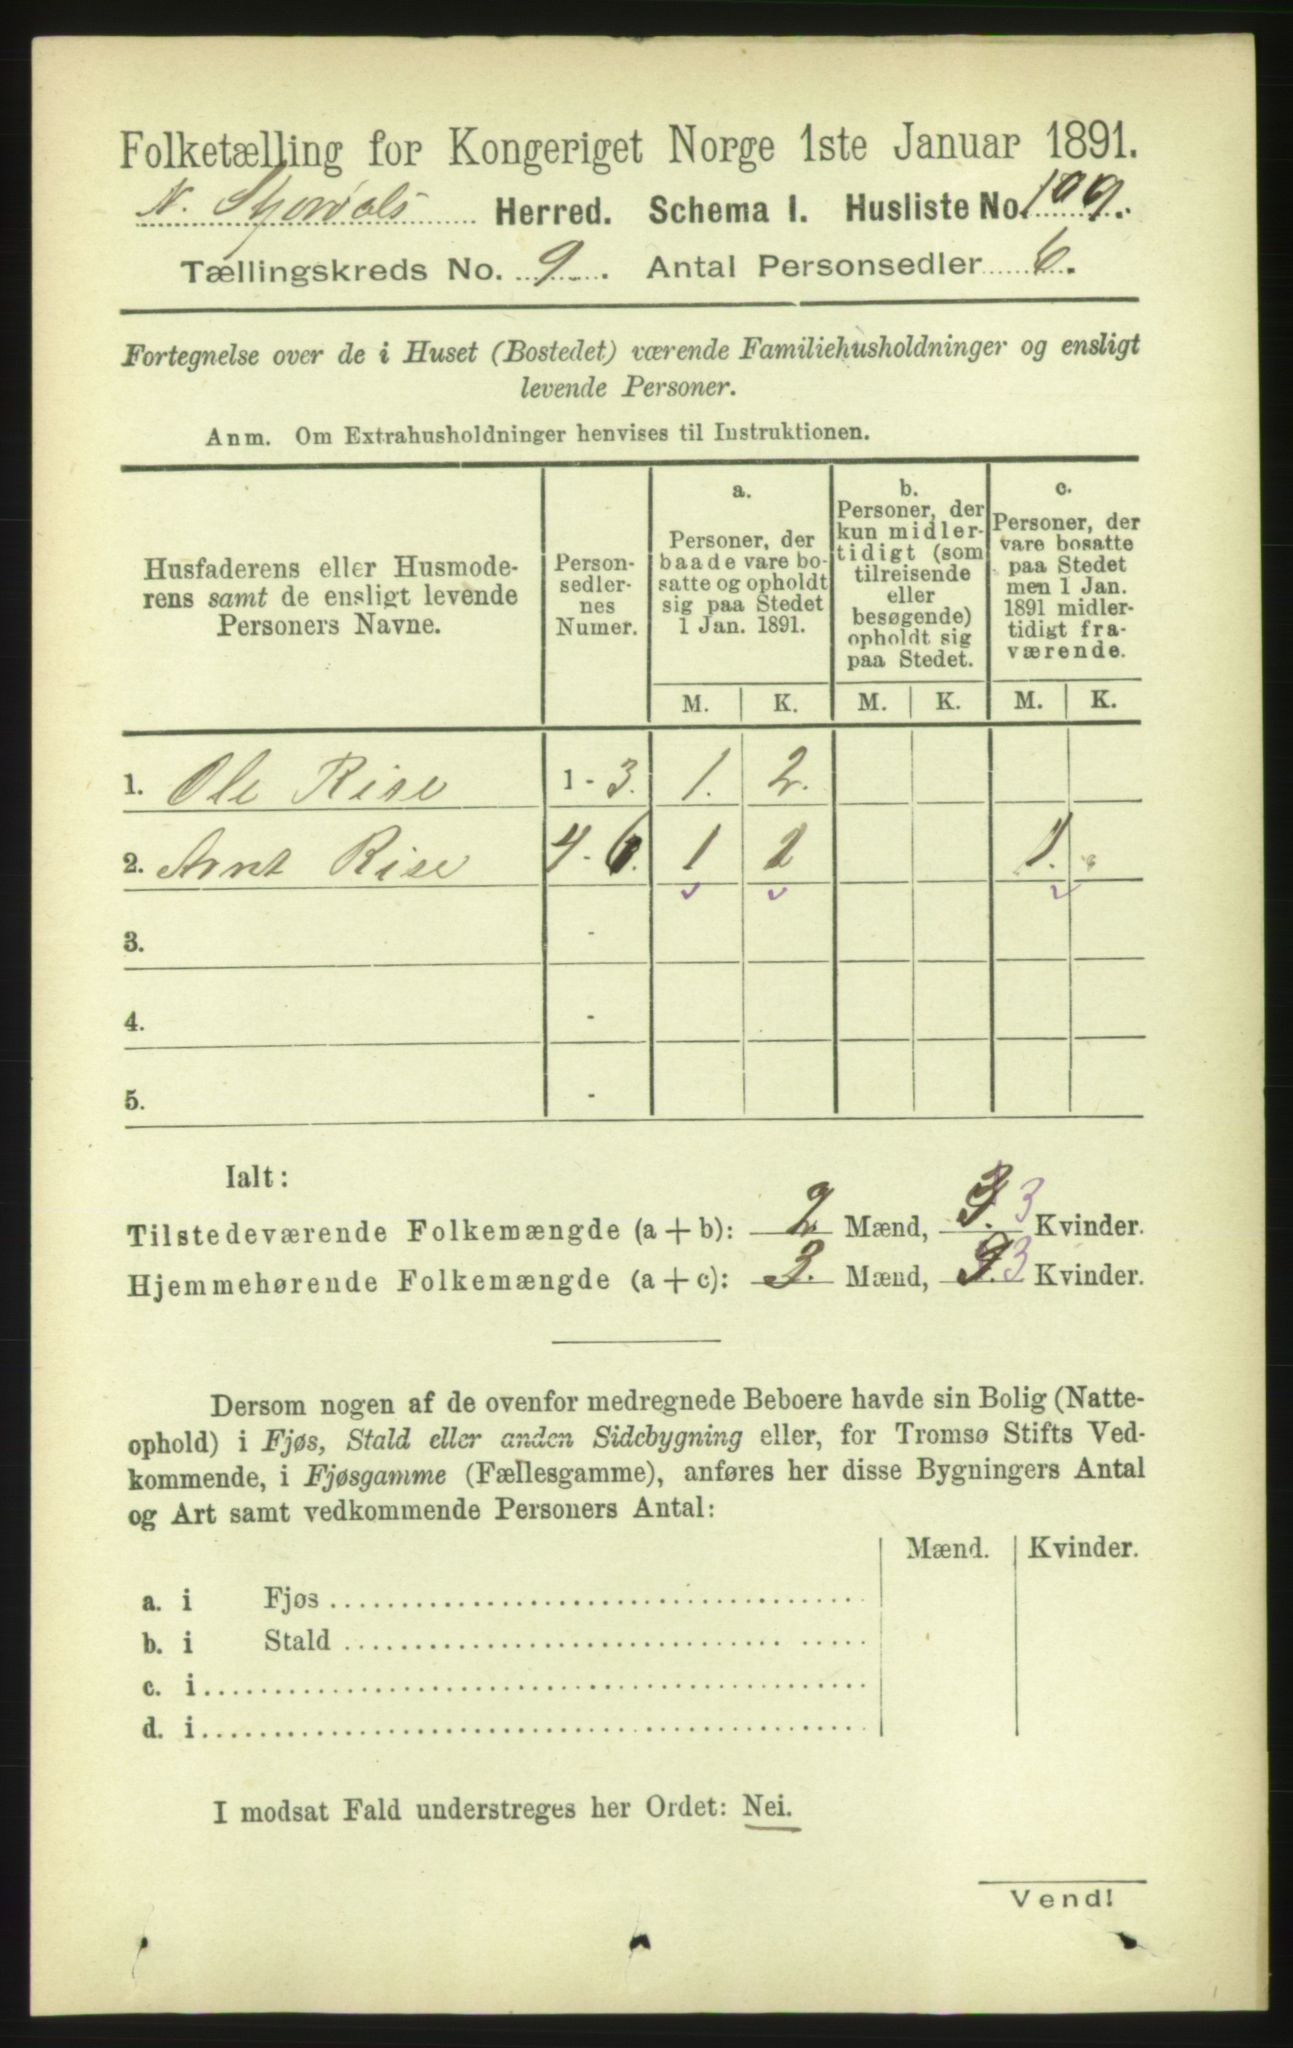 Folketælling for Kongeriget Norge 1ste Januar 1891.
N. Stjørdals Herred. Schema I. Husliste No. 109.
Tællingskreds No. 9. Antal Personsedler 6.
Fortegnelse over de i Huset (Bostedet) værende Familiehusholdninger og ensligt
levende Personer.
Anm. Om Extrahusholdninger henvises til Instruktionen.
Husfaderens eller Husmode-
rens samt de ensligt levende
Personers Navne.
Person-
sedler-
nes
Numer.
a.
Personer, der
baade vare bo-
satte og opholdt
sig paa Stedet
1 Jan. 1891.
b.
Personer, der
kun midler-
tidigt (som
tilreisende
eller
besøgende)
opholdt sig
paa Stedet.
c.
Personer, der
vare bosatte
paa Stedet
men 1 Jan.
1891 midler-
tidigt fra-
værende.
M. K. M. K. M. K.
1. Ole Rise 1 - 3. 1. 2.
2. Arnt Rise 4 - 6. 1 1 1.
3. -
4. -
5. -
Ialt:
Tilstedeværende Folkemængde (a + b): 2 Mænd, 3. 3 Kvinder.
Hjemmehørende Folkemængde (a + c): 3. Mænd, 3 Kvinder.
Dersom nogen af de ovenfor medregnede Beboere havde sin Bolig (Natte-
ophold) i Fjøs, Stald eller anden Sidebygning eller, for Tromsø Stifts Ved-
kommende, i Fjøsgamme (Fællesgamme), anføres her disse Bygningers Antal
og Art samt vedkommende Personers Antal:
Mænd. Kvinder.
a. i Fjøs
b. i Stald
c. i
d. i
I modsat Fald understreges her Ordet: Nei.
Vend!